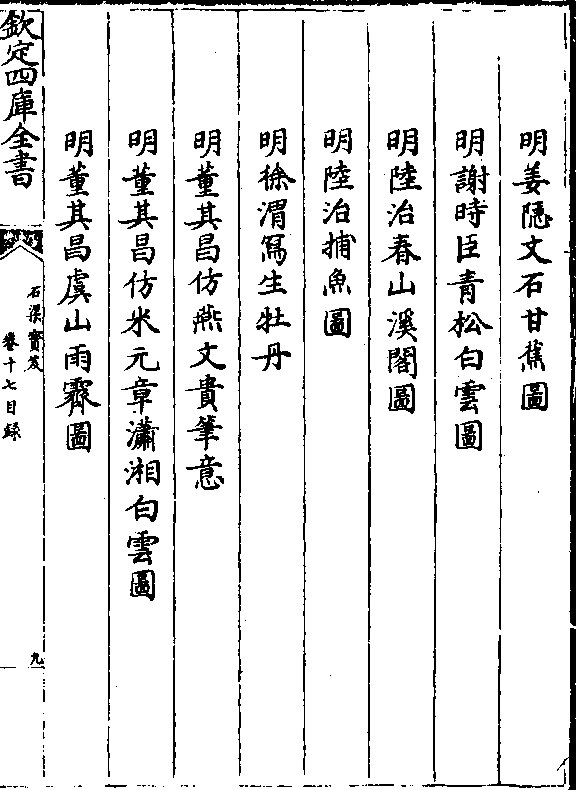 明姜隱文石甘蕉圖
明謝時臣青松白雲圖
明陸治春山溪閣圖
明陸治捕魚圖
明徐渭寫生牡丹
明董其昌仿燕文貴筆意
明董其昌仿米元章瀟湘白雲圖
明董其昌虞山雨霽圖
欽定四庫全書
石渠寶笈
卷十七目録
九